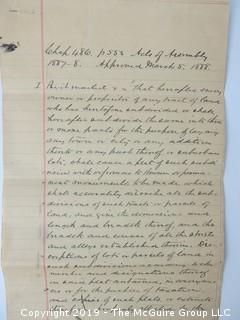 Chap. 486. p 555 Acts of Assembly
1887-8. Approved March 5, 1888.
1 Be it enacted &c That hereafter every
owner or proprietor of any tract of land
who has heretofore subdivided or shall
hereafter subdivide the same into two
or more parts for the purpose of laying
any town or city or any addition
thereto or any part thereof or suburban
lots, shall cause a plat of such subdi-
vision with reference to known or perma-
nent monuments to be made, which
shall accurately describe all the sub-
divisions of such tract or parcels of
land, and give the dimensions and
length and breadth thereof, and the
breadth and courses of all the streets
and alleys established therein. Des-
criptions of lots or parcels of land in
such subdivisions according to the
number and designation thereof
on said plat contained, in conveyances
or for the purposes of taxation
Copyright 2019 - The McGuire Group LLC